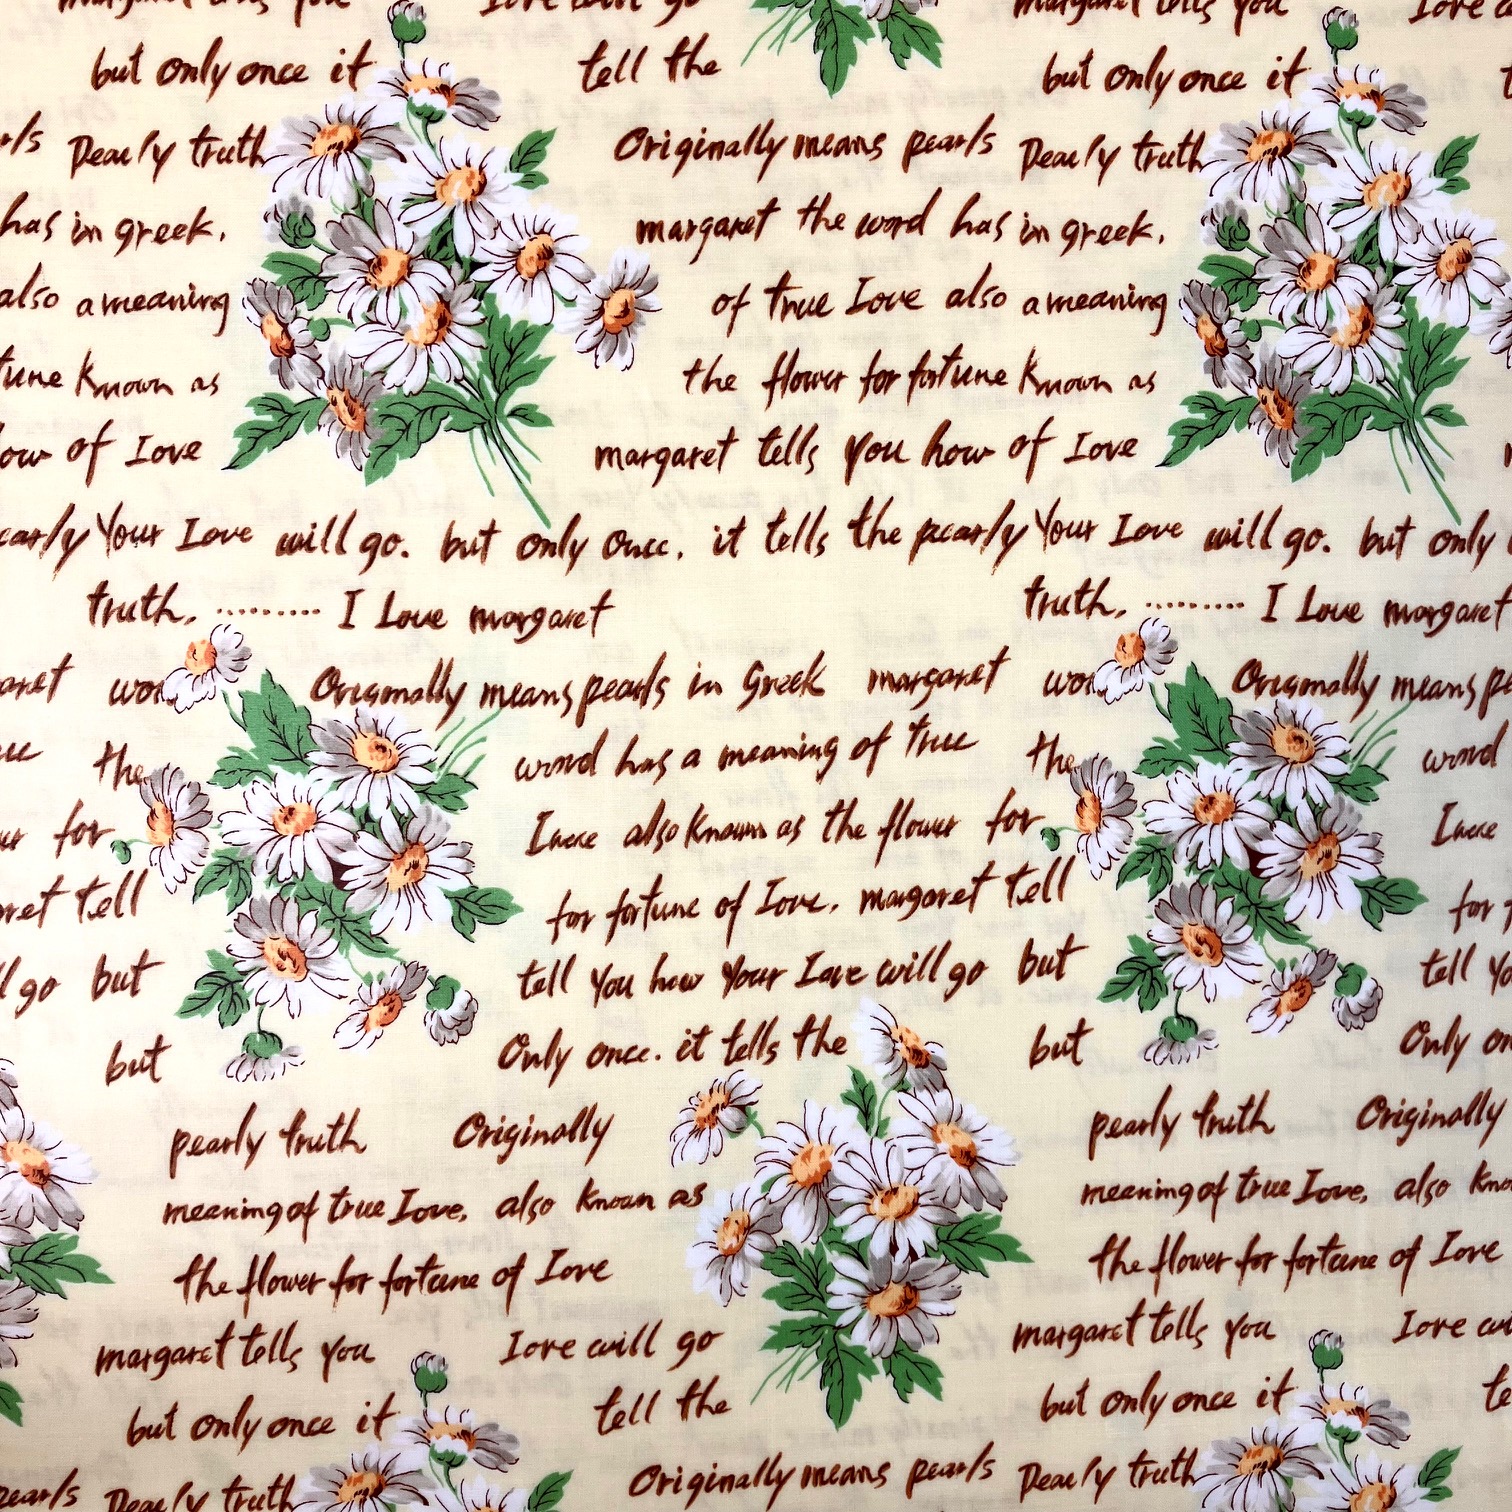 margaret tells you Iove will go margaret tells you Iove
but only once it tell the but only once it
Pearly truth Originally means pearls Pearly truth
has in greek. margaret the word has in greek.
also a meaning of true Iove also a meaning
known as the flower for fortune known as
of Iove margaret tells you how of Iove
Your Iove will go. but only once. it tells the pearly Your Iove will go. but only
truth. ......... I Love margaret truth. ......... I Love margaret
Originally means pearls in Greek margaret Originally means
the word has a meaning of true the word
for also known as the flower for
tell for fortune of Iove. margaret tell for
go but tell you how your Iove will go but tell
but Only once. it tells the but Only
pearly truth Originally pearly truth Originally
meaning of true Iove, also known as meaning of true Iove, also
the flower for fortune of Iove the flower for fortune of Iove
margaret tells you Iove will go margaret tells you Iove
but only once it tell the but only once it
pearls Pearly truth Originally means pearls Pearly truth